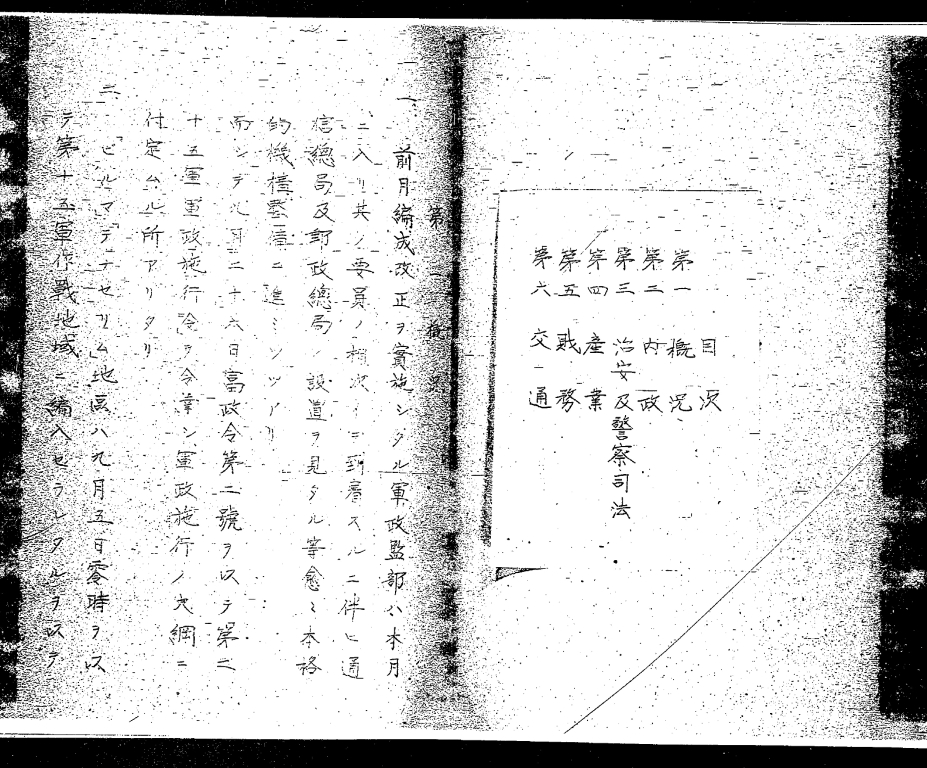 目次
第一 概況
第二 内政
第三 治安及警察司法
第四 産業
第五 財務
第六 交通
第一 概況
一、前月編成改正ヲ實施シタル軍政監部ハ本月
ニ入リ其ノ要員ノ相次イデ到着スルニ伴ヒ通
信總局及郵政總局ノ設置ヲ見タル等愈〻本格
的機構整備ニ進ミツツアリ
而シテ九月二十六日富政令第二號ヲ以テ第二
十五軍軍政施行令ヲ令達シ軍政施行ノ大綱ニ
付定ムル所アリタリ
二、「ビルマ」「テナセリム」地區ハ九月五日零時ヲ以
テ第十五軍作戰地域ニ編入セラレタルヲ以テ